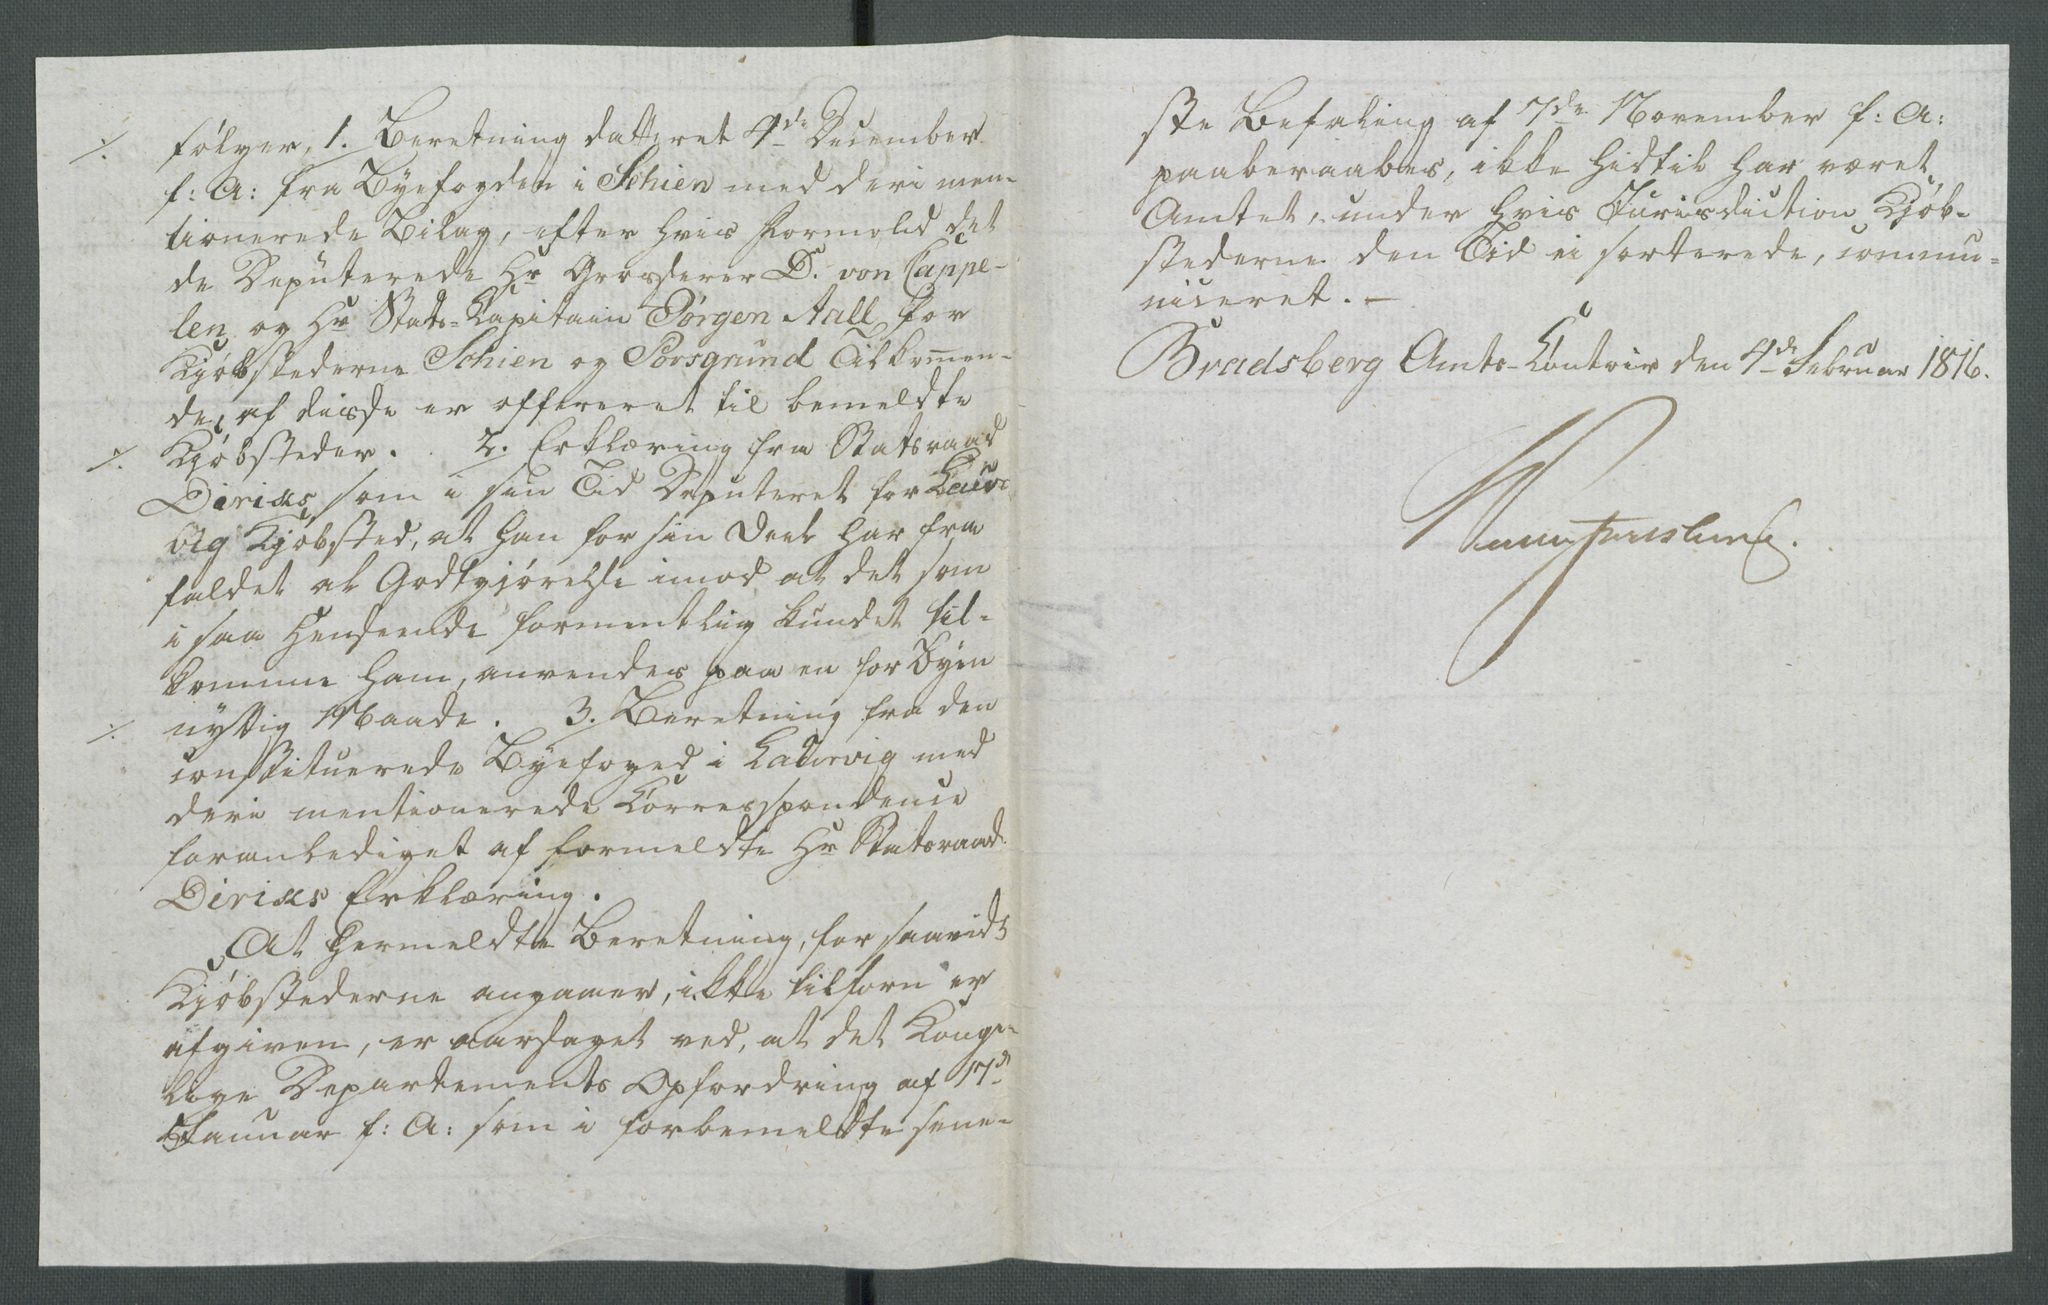 følger, 1. Beretning datteret 4de December
f: A: fra Byefogden i Schien med deri men-
tionerede Bilag, efter hvis Formold det
de Deputerede Hr Grosserer D. von Cappe-
len og Hr Stads-Kapitain Jörgen Aall for
Kjøbstederne Schien og Porsgrund Tilkomen-
de, af disse er offereret til bemeldte
Kjøbsteder. 2. Erklæring fra Statsraad
Dirixs, som i sin Tid Deputeret for Laur-
vig Kjøbsted, at han for sin Deel har fra
faldet al Godtgjørelse imod at det som
i saa Henseende formentlig kundet til-
komme ham, anvendes paa en for Byen
nyttig Maade. 3. Beretning fra den
constituerede Byefoged i Laurvig med
deri mentionerede Correspondence
foranlediget af formeldte Hr Statsraad
Dirixs Erklæring.
At hermeldte Beretning, for saavidt
Kjøbstederne angaaer, ikke tilforn er
afgiven, er aarsaget ved, at det Konge-
lige Departements Opfordring af 17de
Januar f: A: som i forbemeldte sene-
ste Befaling af 7de November f: A:
paaberaabes, ikke hidtil har været
Amtet, under hvis Jurisdiction Kjøb-
stederne den Tid ei sorterede, commu-
niceret. -
Bradsberg Amts-Contoir den 4de Februar 1816.